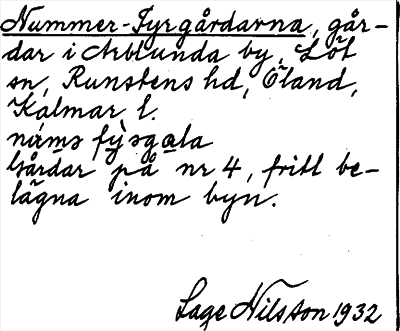 Nummer-Fyrgårdarna, går-
dar i Arblunda by, Löt
sn, Runstens hd, Öland,
Kalmar l.
Gårdar på nr 4, fritt be-
lägna inom byn.
Lage Nilsson 1932